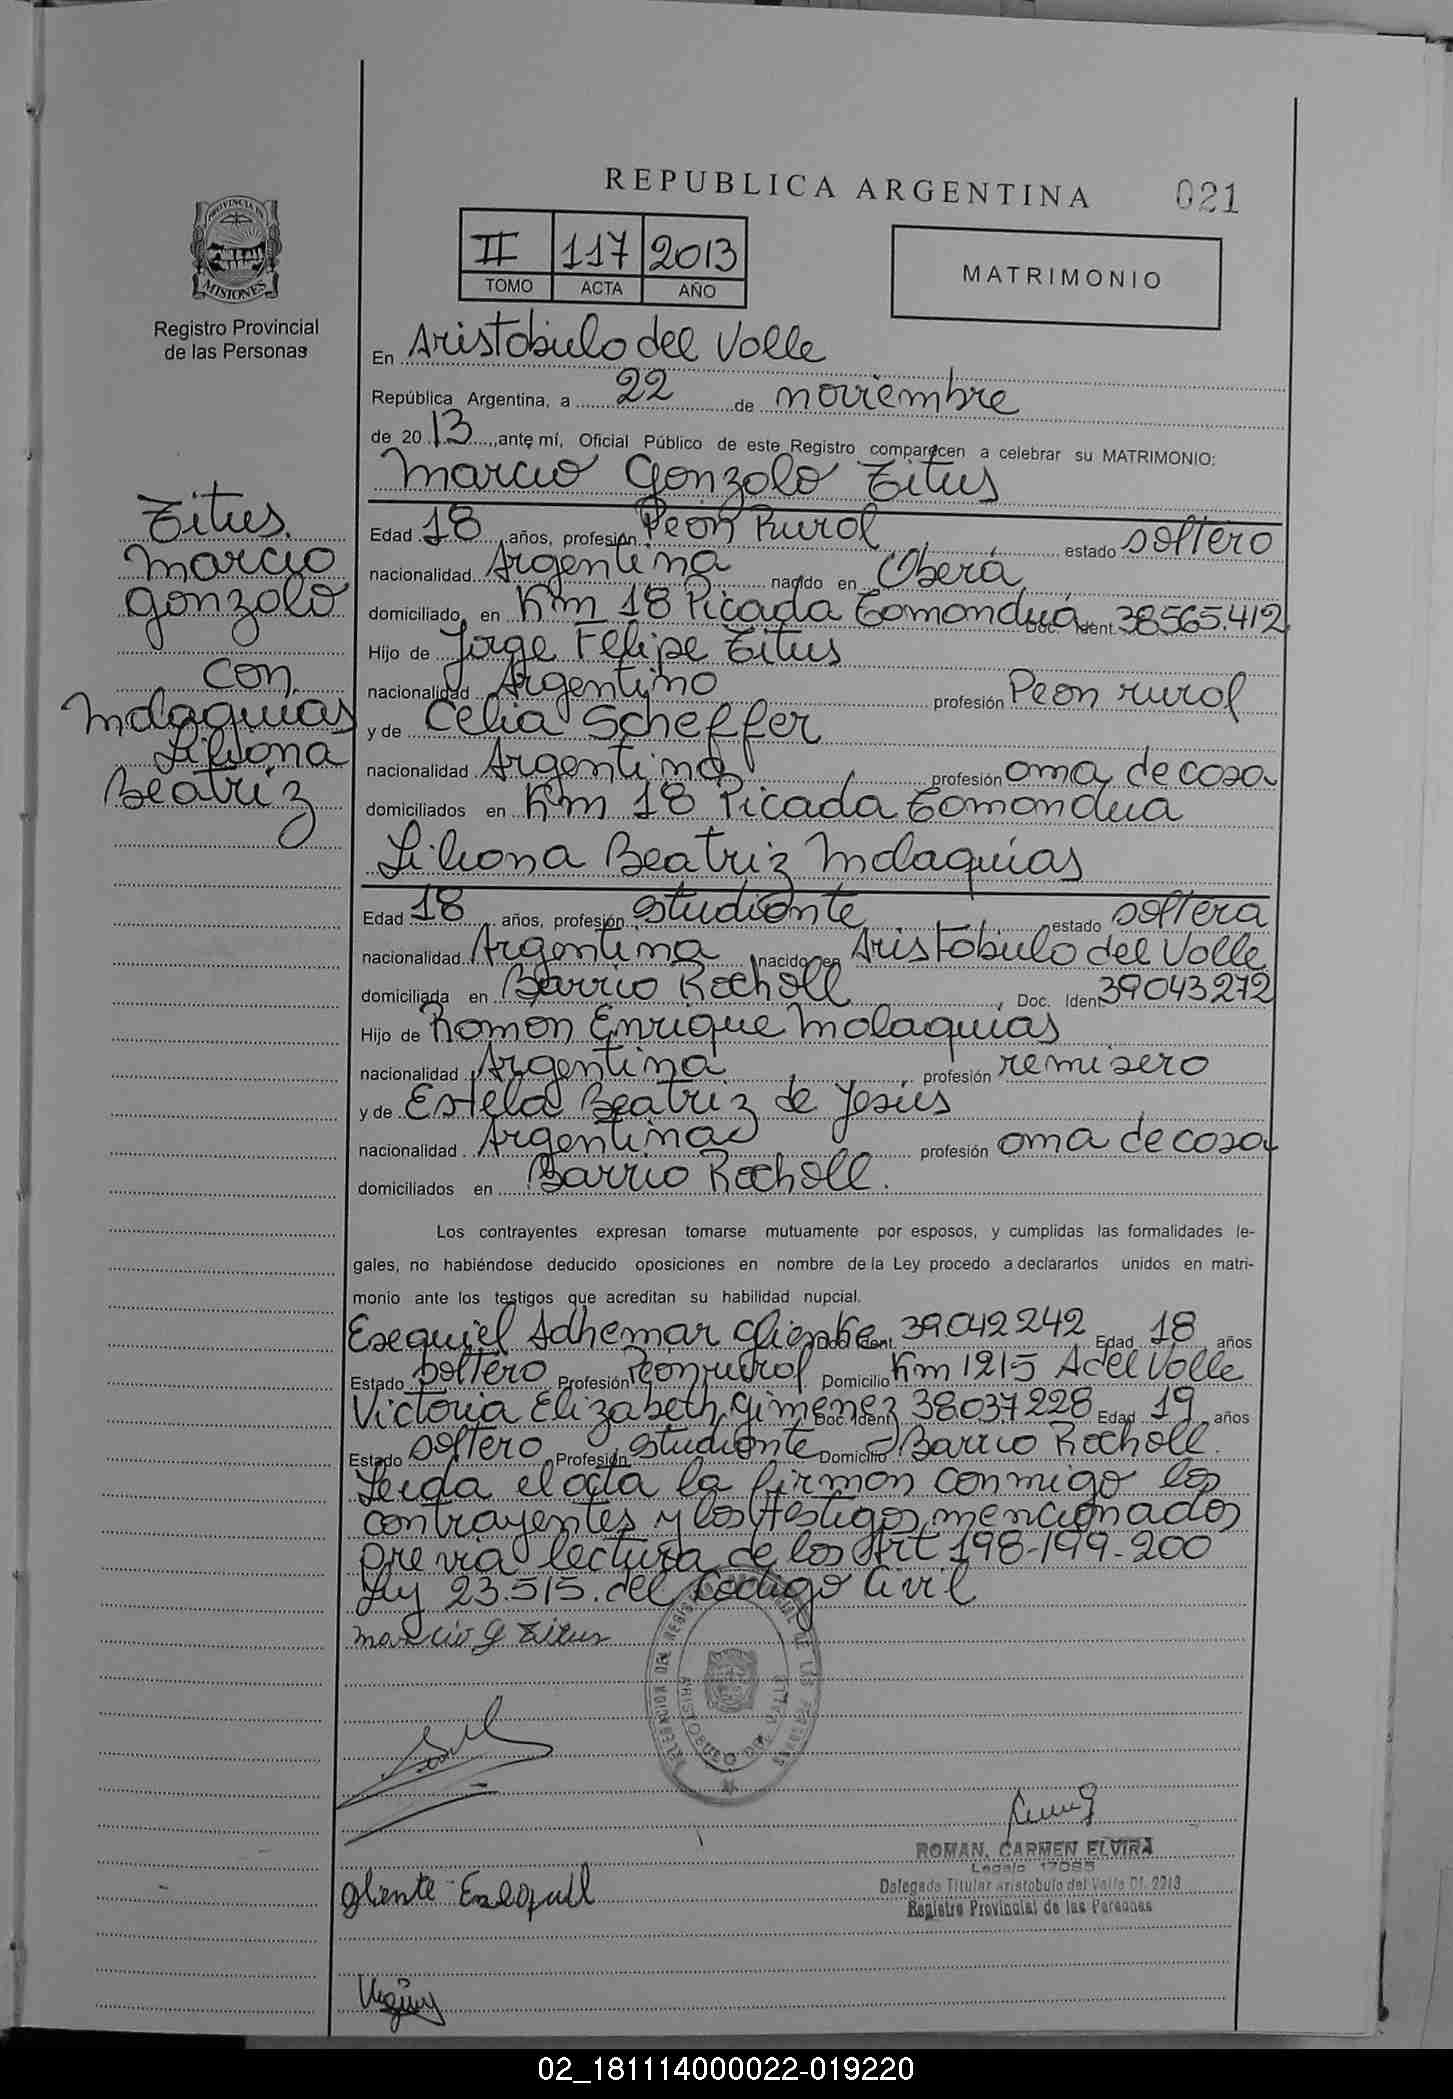 REPUBLICA ARGENTINA
021
PROVINCIA DE
MISIONES
Registro Provincial
de las Personas
II 117 2013
TOMO ACTA AÑO
MATRIMONIO
En Aristobulo del Valle
República Argentina, a 22 de noviembre
de 2013, ante mí, Oficial Público de este Registro comparecen a celebrar su MATRIMONIO:
Marcio Gonzalo Titus
Titus
Marcio
Gonzalo
con
Malaquias
Liliana
Beatriz
Edad 18 años, profesión Peon Rural estado soltero
nacionalidad Argentina nacido en Oberá
domiciliado en Km 18 Picada Tomanduá Doc. Ident. 38565.412
Hijo de Jorge Felipe Titus
nacionalidad Argentino profesión Peon rural
y de Celia Scheffer
nacionalidad Argentina profesión ama de casa
domiciliados en Km 18 Picada Tomandua
Liliana Beatriz Malaquias
Edad 18 años, profesión estudiante estado soltera
nacionalidad Argentina nacido en Aristobulo del Valle
domiciliada en Barrio Rocholl, Doc. Ident 39043272
Hijo de Ramon Enrique Malaquias
nacionalidad Argentina profesión remisero
y de Estela Beatriz de Jesús
nacionalidad Argentina profesión ama de casa
domiciliados en Barrio Rocholl.
Los contrayentes expresan tomarse mutuamente por esposos, y cumplidas las formalidades le-
gales, no habiéndose deducido oposiciones en nombre de la Ley procedo a declararlos unidos en matri-
monio ante los testigos que acreditan su habilidad nupcial.
Exequiel Adhemar 39.042242 Edad 18 años
Estado soltero Profesión Peon rural Domicilio Km 1215 A del Valle
Victoria Elizabeth Gimenez Doc. Ident 38037228 Edad 19 años
Estado soltero Profesión estudiante Domicilio Barrio Rocholl.
Leida el acta la firman conmigo los
contrayentes y los testigos mencionados
previa lectura de los Art 198-199-200
Ley 23.515. del Codigo Civil
Marcio G Titus
ROMAN, CARMEN ELVIRA
Legajo 17085
Delegada Titular Aristobulo del Valle Df. 2213
Registro Provincial de las Personas
02_181114000022-019220